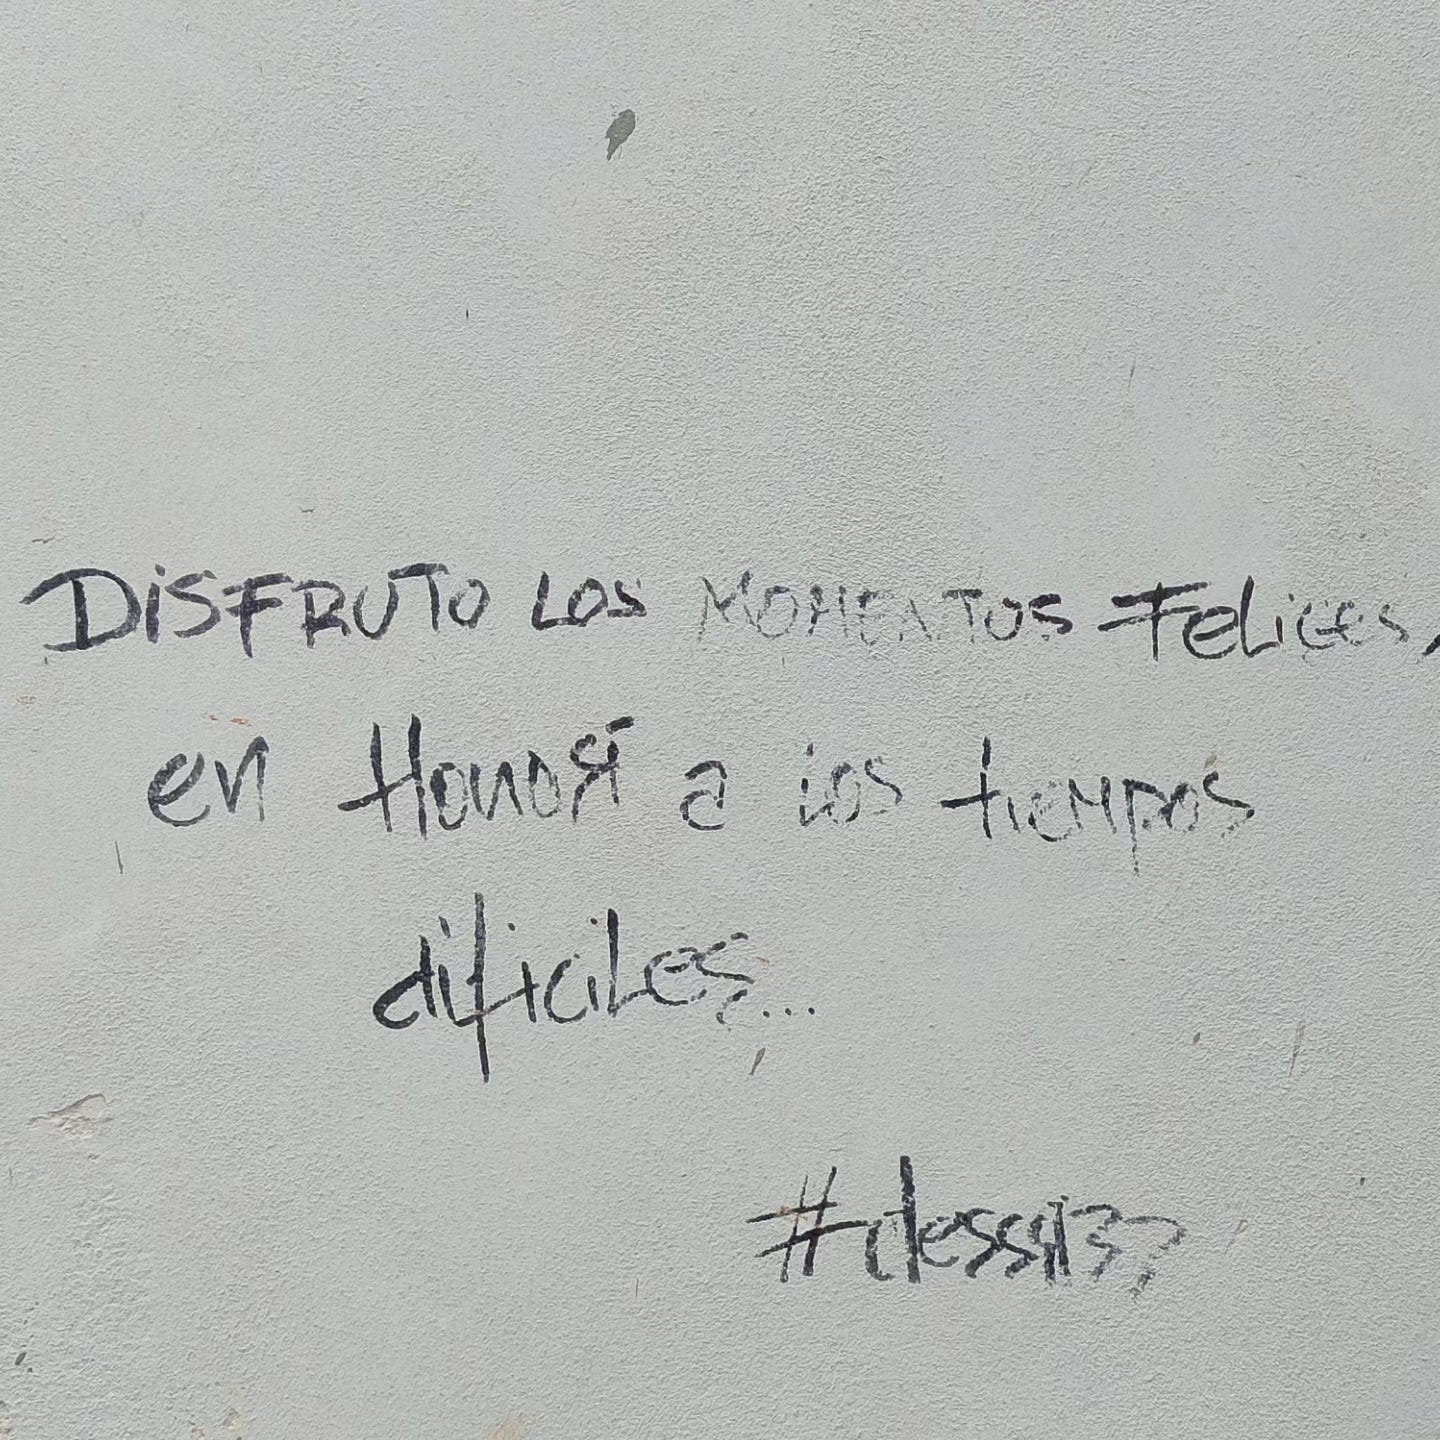 DISFRUTO LOS MOMENTOS FELICES,
en Honor a los tiempos
dificiles...